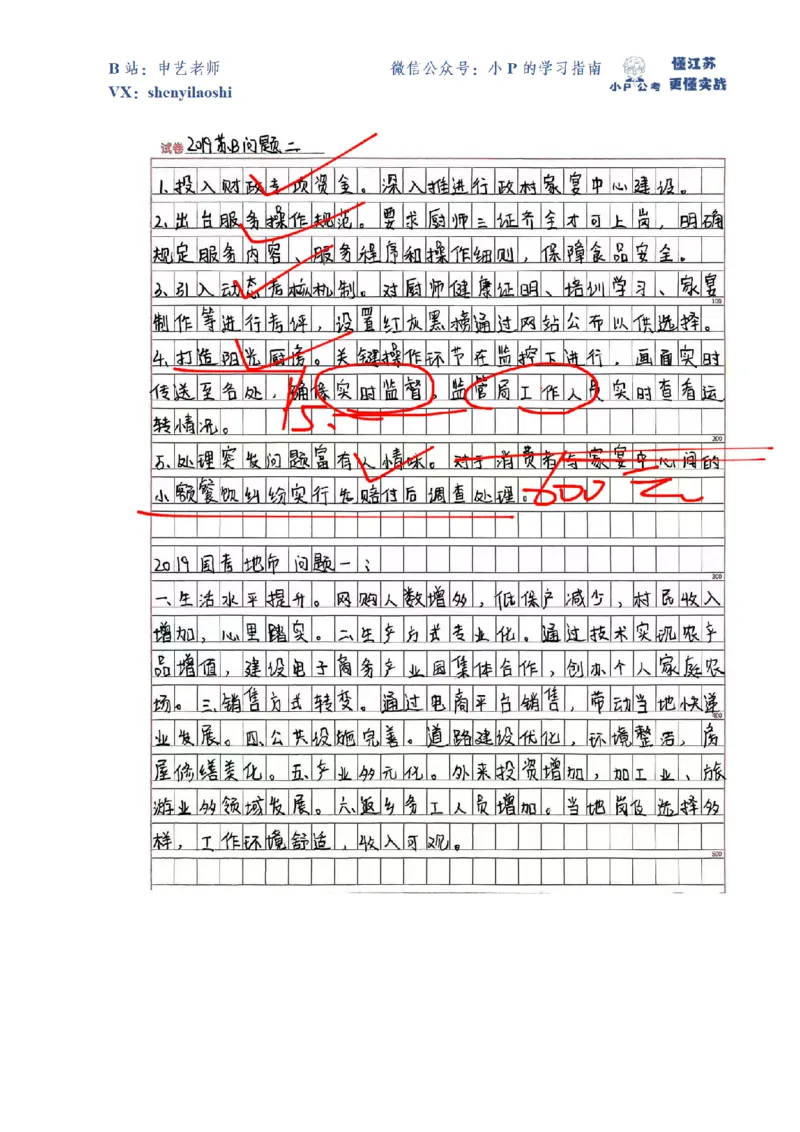 B 站：申艺老师
微信公众号：小 P 的学习指南
懂江苏
小P公考 更懂实战
VX：shenyilaoshi
试卷 2019苏B问题二
1.投入财政专项资金。深入推进行政村家宴中心建设。
2.出台服务操作规范。要求厨师三证齐全才可上岗，明确
规定服务内容、服务程序和操作细则，保障食品安全。
3.引入动态考核机制。对厨师健康证明、培训学习、家宴
100
制作等进行考评，设置红灰黑榜通过网站公布以供选择。
4.打造阳光厨房。关键操作环节在监控下进行，画面实时
传送至各处，确保实时监督，监管局工作人员实时查看运
15.
转情况。
200
5.处理突发问题富有人情味。对于消费者与家宴中心间的
小额餐饮纠纷实行先赔付后调查处理。
600元
2019国考地市问题一：
300
一.生活水平提升。网购人数增多，低保户减少，村民收入
增加，心里踏实。二.生产方式专业化。通过技术实现农产
品增值，建设电子商务产业园集体合作，创办个人家庭农
场。三.销售方式转变。通过电商平台销售，带动当地快递
400
业发展。四.公共设施完善。道路建设优化，环境整洁，房
屋修缮美化。五.产业多元化。外来投资增加，加工业、旅
游业多领域发展。六.返乡务工人员增加。当地岗位选择多
样，工作环境舒适，收入可观。
500